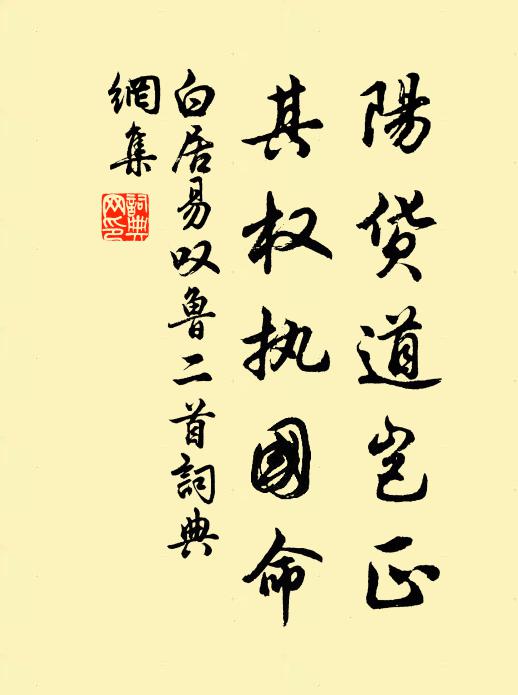 陽货道岂正
其权执國命
白居易叹魯二首詞典
網集
詞典網印